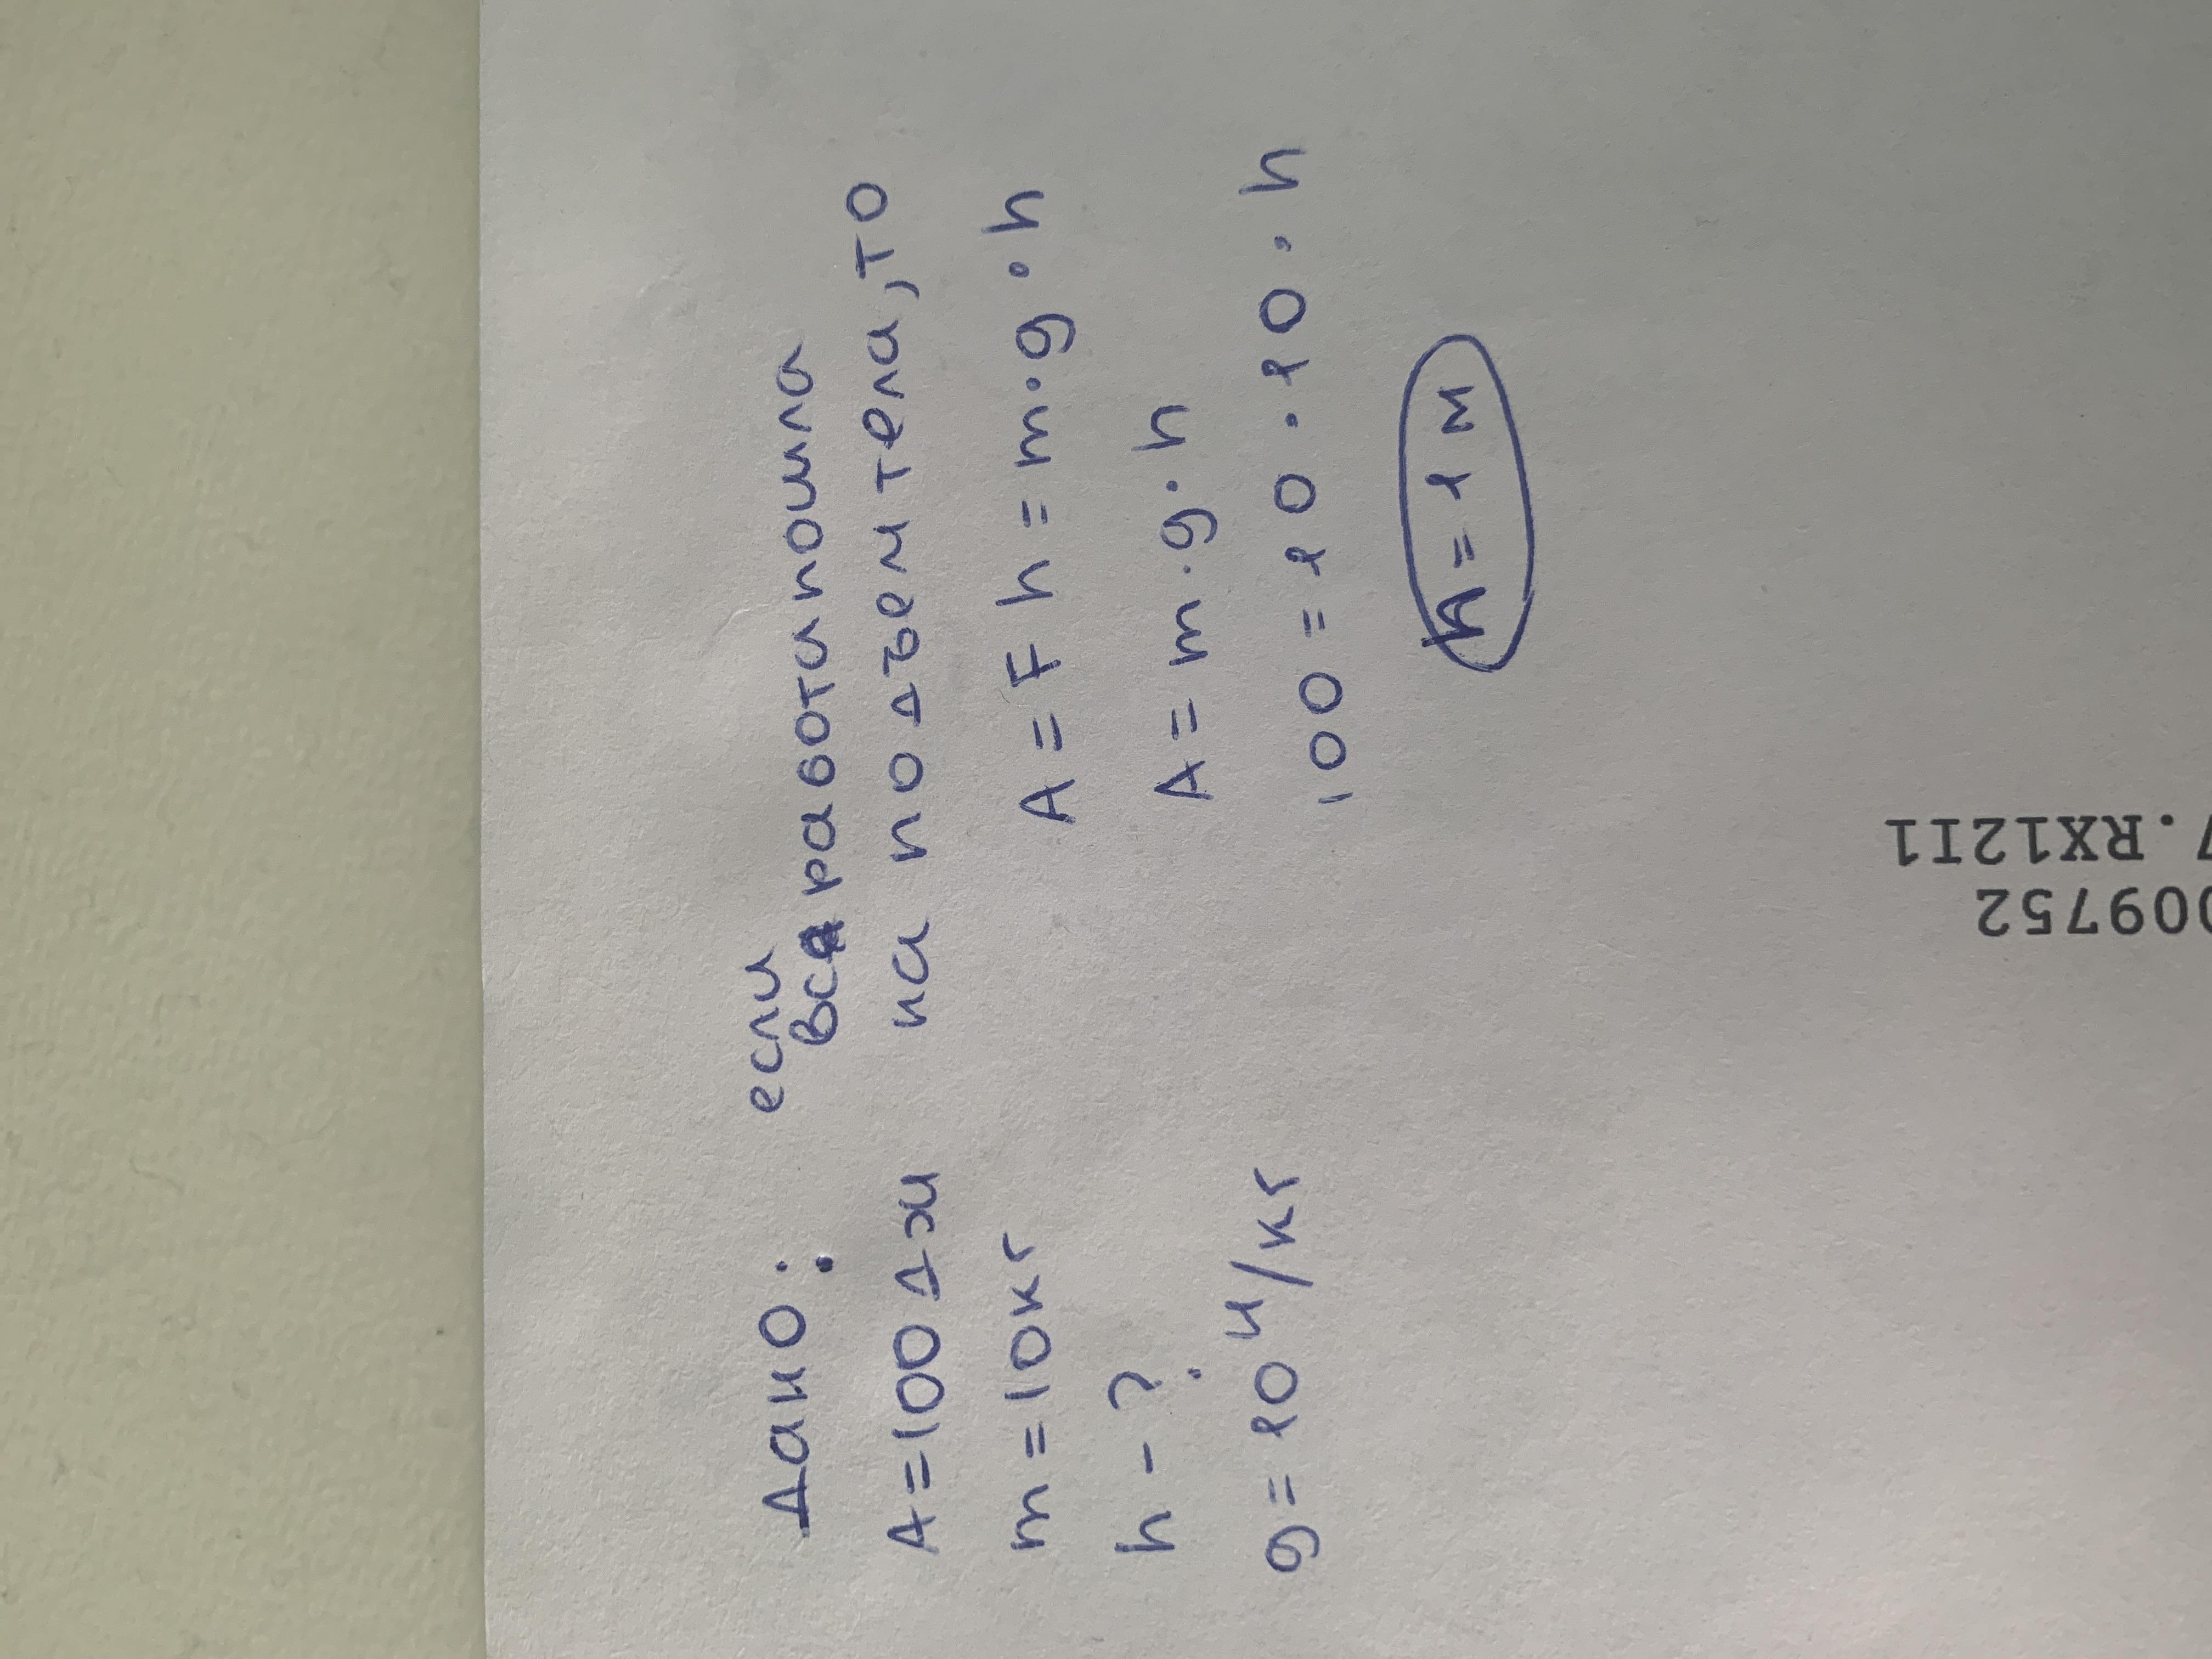 Дано:
A=100 Дж
m=10кг
h-?
g=10 н/кг
если
вся работа пошла
на подъем тела, то
A=Fh=m·g·h
A=m·g·h
100=10·10·h
h=1м
7.RX12I1
009752